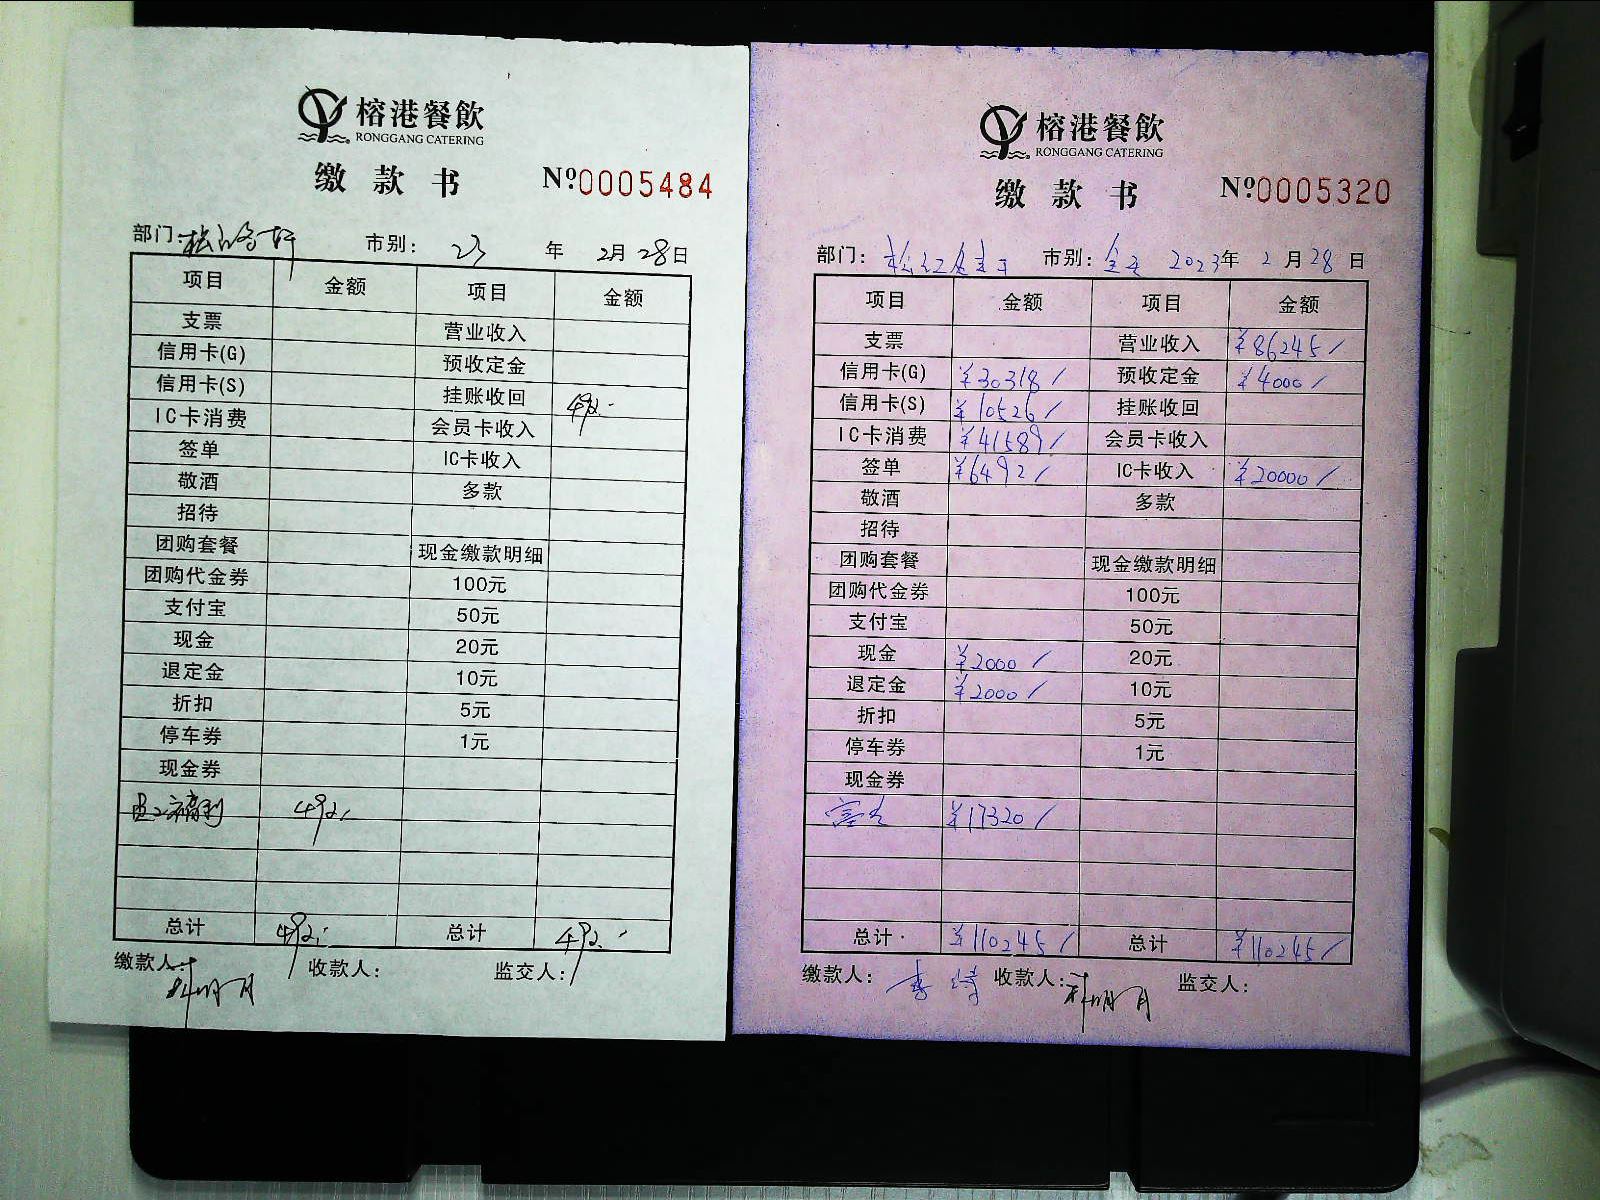 榕港餐飲
RONGGANG CATERING
缴款书 Nº0005484
部门: 市别: 23 年 2月 28日
项目 金额 项目 金额
支票 营业收入
信用卡(G) 预收定金
信用卡(S) 挂账收回 492.-
IC卡消费 会员卡收入
签单 IC卡收入
敬酒 多款
招待
团购套餐 现金缴款明细
团购代金券 100元
支付宝 50元
现金 20元
退定金 10元
折扣 5元
停车券 1元
现金券
员工福利 492.-
总计 492.- 总计 492.-
缴款人: 收款人: 监交人:
榕港餐飲
RONGGANG CATERING
缴款书 Nº0005320
部门: 市别: 全天 2023年 2月28日
项目 金额 项目 金额
支票 营业收入 ¥86245/
信用卡(G) ¥30318/ 预收定金 ¥4000/
信用卡(S) ¥10526/ 挂账收回
IC卡消费 ¥41589/ 会员卡收入
签单 ¥6492/ IC卡收入 ¥20000/
敬酒 多款
招待
团购套餐 现金缴款明细
团购代金券 100元
支付宝 50元
现金 ¥2000/ 20元
退定金 ¥2000/ 10元
折扣 5元
停车券 1元
现金券
¥17320/
总计 ¥110245/ 总计 ¥110245/
缴款人: 李 收款人: 监交人: